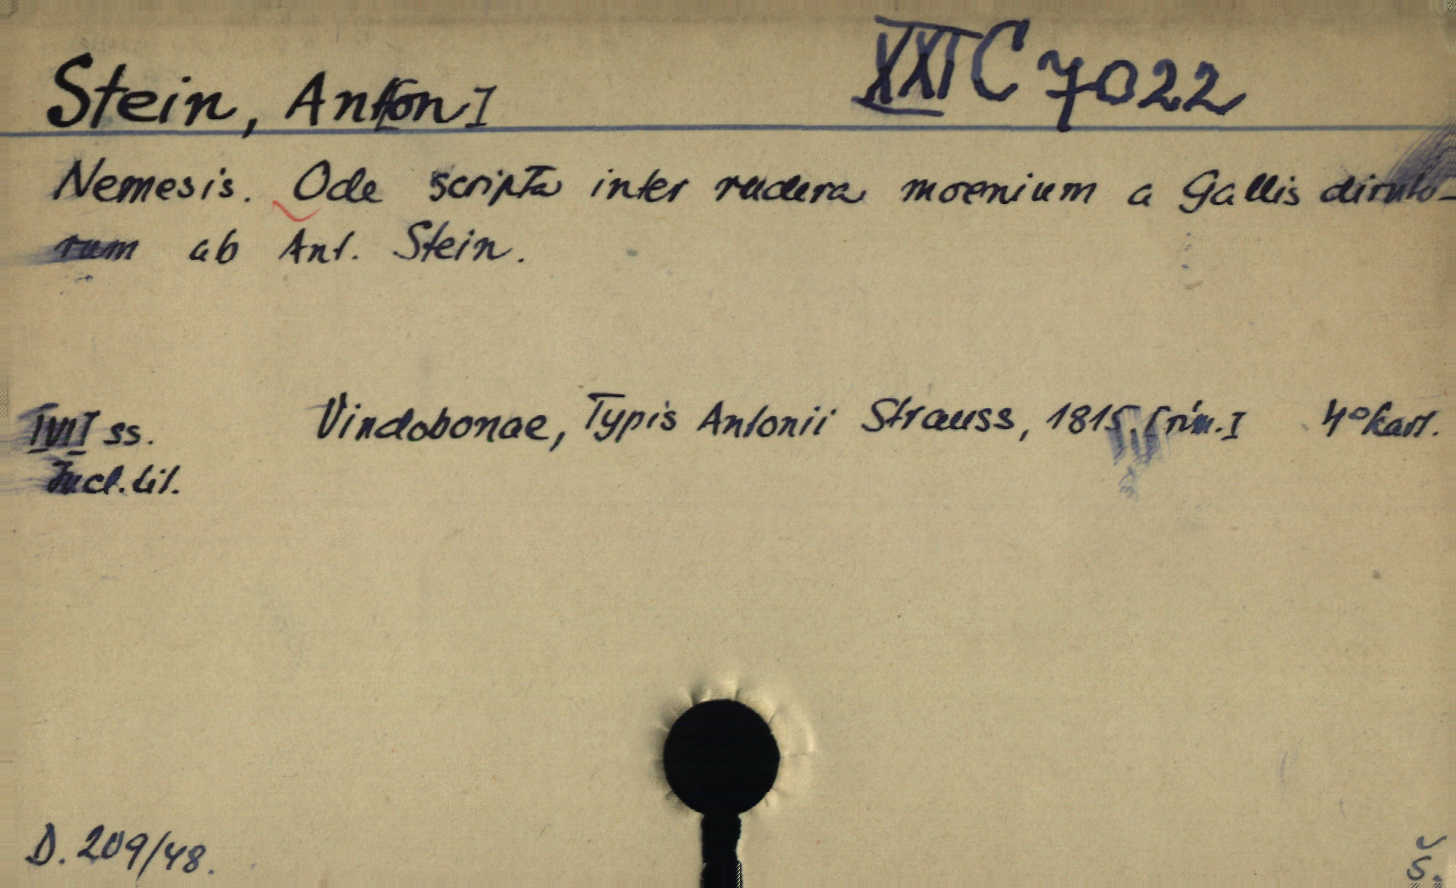 Stein, Anton I
XXI C 7022
Nemesis. Ode scripta inter rudera moenium a Gallis diruto-
rum ab Ant. Stein.
ss. Vindobonae, Typis Antonii Strauss, 1815. [řím.] 4° kart.
Incl. lit.
D. 209/48.
š.